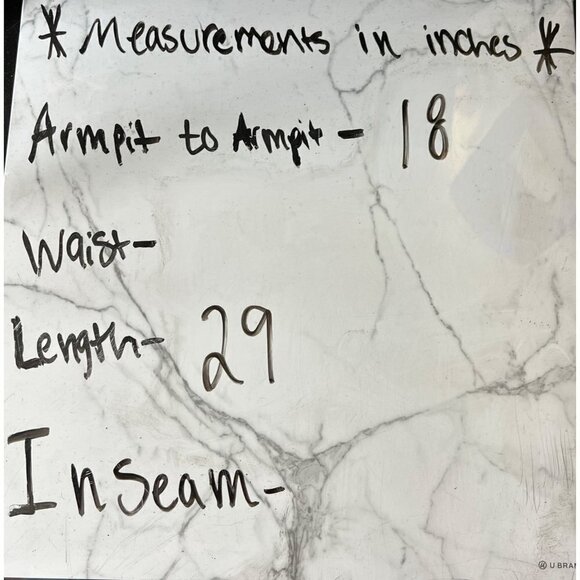 * Measurements in inches *
Armpit to Armpit - 18
Waist-
Length- 29
Inseam-
U BRAN